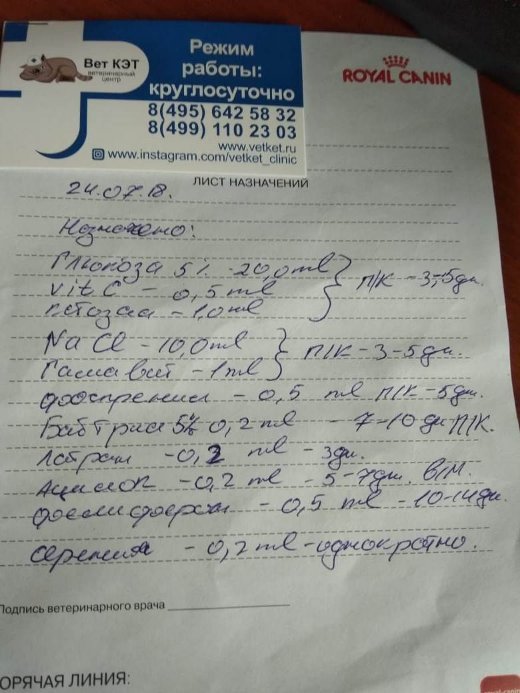 Вет КЭТ
ветеринарный
центр
Режим
работы:
круглосуточно
8(495) 642 58 32
8(499) 110 23 03
www.vetket.ru
www.instagram.com/vetket_clinic
ROYAL CANIN
ЛИСТ НАЗНАЧЕНИЙ
24.07.18.
Назначено:
Глюкоза 5% - 20,0 ml
vit C - 0,5 ml
- 1,0 ml
п/к - 3-5 дн.
NaCl - 10,0 ml
Гамавит - 1 ml
п/к - 3-5 дн.
- 0,5 ml п/к - 5 дн.
5% 0,2 ml - 7-10 дн п/к.
Латран - 0,2 ml - 3 дн.
- 0,2 ml - 5-7 дн. в/м.
- 0,5 ml - 10-14 дн.
серения - 0,2 ml - однократно.
Подпись ветеринарного врача
ОРЯЧАЯ ЛИНИЯ: